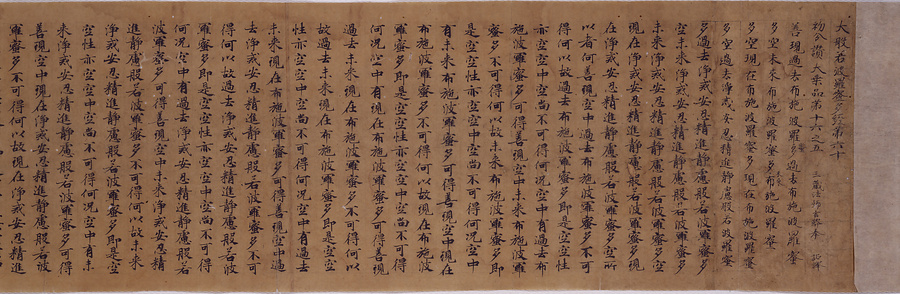 大般若波羅蜜多經卷第六十
初分讚大乘品第十六之五 三藏法師玄奘奉 詔譯
善現過去布施波羅蜜多過去布施波羅蜜
多空未來布施波羅蜜多未來布施波羅蜜
多空現在布施波羅蜜多現在布施波羅蜜
多空過去淨戒安忍精進靜慮般若波羅蜜
多過去淨戒安忍精進靜慮般若波羅蜜多
空未來淨戒安忍精進靜慮般若波羅蜜多
未來淨戒安忍精進靜慮般若波羅蜜多空
現在淨戒安忍精進靜慮般若波羅蜜多現
現在淨戒安忍精進靜慮般若波羅蜜多空所
以者何善現空中過去布施波羅蜜多不可
得何以故過去布施波羅蜜多即是空空性
亦空空中空尚不可得何況空中有過去布
施波羅蜜多可得善現空中未來布施波羅
蜜多不可得何以故未來布施波羅蜜多即
是空空性亦空空中空尚不可得何況空中
有未來布施波羅蜜多可得善現空中現在
布施波羅蜜多不可得何以故現在布施波
羅蜜多即是空空性亦空空中空尚不可得
何況空中有現在布施波羅蜜多可得善現
過去未來現在布施波羅蜜多不可得何以
故過去未來現在布施波羅蜜多即是空空
性亦空空中空尚不可得何況空中有過去
未來現在布施波羅蜜多可得善現空中過
去淨戒安忍精進靜慮般若波羅蜜多不可
得何以故過去淨戒安忍精進靜慮般若波
羅蜜多即是空空性亦空空中空尚不可得
何況空中有過去淨戒安忍精進靜慮般若
波羅蜜多可得善現空中未來淨戒安忍精
進靜慮般若波羅蜜多不可得何以故未來
淨戒安忍精進靜慮般若波羅蜜多即是空
空性亦空空中空尚不可得何況空中有未
來淨戒安忍精進靜慮般若波羅蜜多可得
善現空中現在淨戒安忍精進靜慮般若波
羅蜜多不可得何以故現在淨戒安忍精進